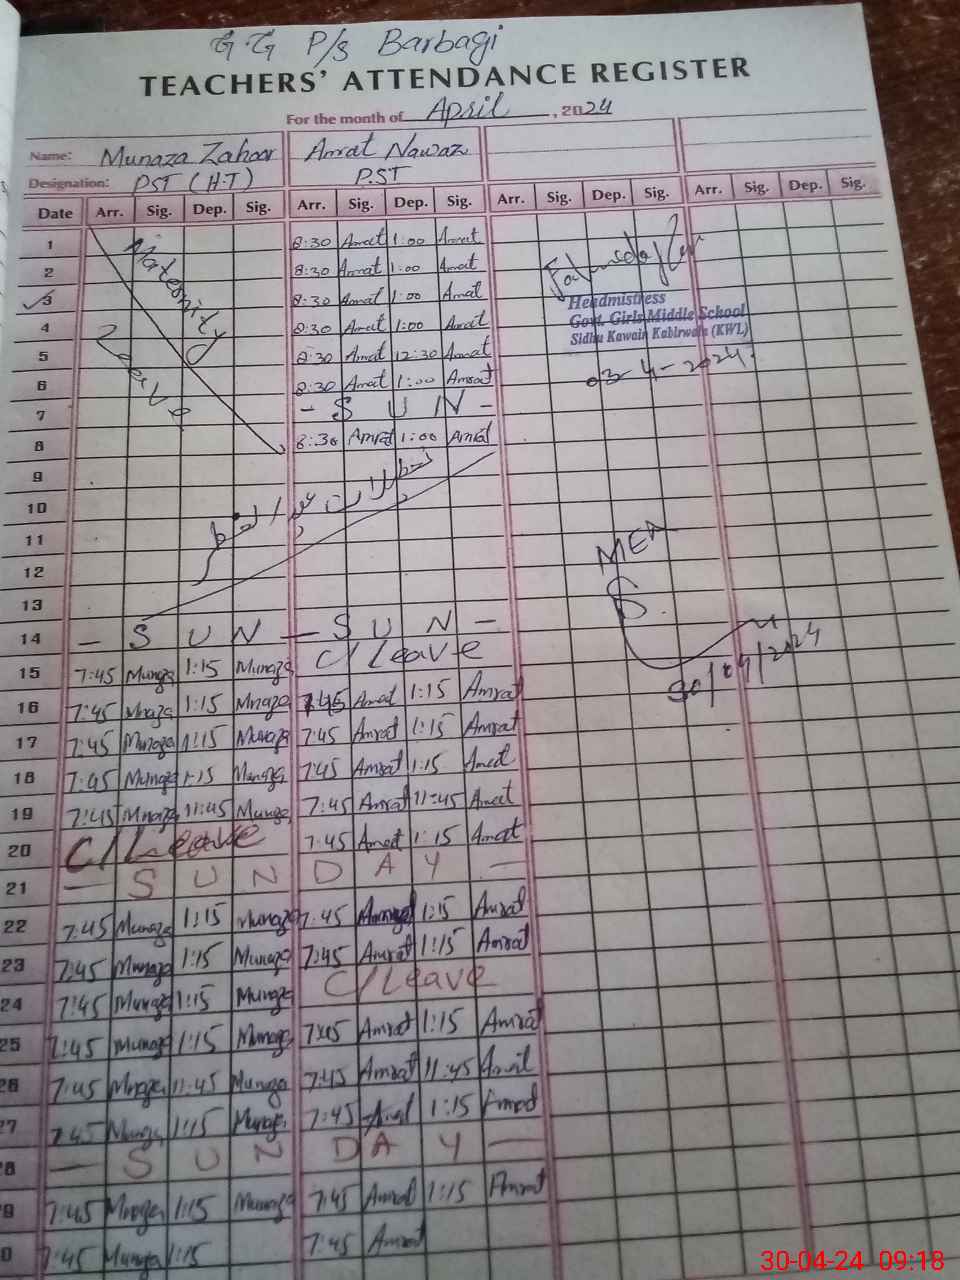 G.G P/s Barbagi
TEACHERS' ATTENDANCE REGISTER
For the month of April, 2024
Name: Munaza Zahoor Amrat Nawaz
Designation: PST (H.T) P.S.T
Date Arr. Sig. Dep. Sig. Arr. Sig. Dep. Sig. Arr. Sig. Dep. Sig. Arr. Sig. Dep. Sig.
Maternity
Leave
1 8:30 Amrat 1:00 Amrat
2 8:30 Amrat 1:00 Amrat
3 8:30 Amrat 1:00 Amrat
Headmistress
Govt. Girls Middle School
Sidhu Kawain Kabirwala (KWL)
03-4-2024
4 8:30 Amrat 1:00 Amrat
5 8:30 Amrat 12:30 Amrat
6 8:30 Amrat 1:00 Amrat
7 - S U N -
8 8:30 Amrat 1:00 Amrat
9
10
11
12
MEA
30/04/2024
13
14 - S U N - S U N -
15 7:45 Munaza 1:15 Munaza C/Leave
16 7:45 Mnaza 1:15 Mnaza 7:45 Amrat 1:15 Amrat
17 7:45 Munaza 1:15 Munaza 7:45 Amrat 1:15 Amrat
18 7:45 Munaza 1:15 Munaza 7:45 Amrat 1:15 Amrat
19 7:45 Mnaza 11:45 Munaza 7:45 Amrat 11:45 Amrat
20 C/Leave 7:45 Amrat 1:15 Amrat
21 - S U N D A Y -
22 7:45 Munaza 1:15 Munaza 7:45 Amrat 1:15 Amrat
23 7:45 Munaza 1:15 Munaza 7:45 Amrat 1:15 Amrat
24 7:45 Munaza 1:15 Munaza C/Leave
25 7:45 Munaza 1:15 Munaza 7:45 Amrat 1:15 Amrat
26 7:45 Mnaza 11:45 Munaza 7:45 Amrat 11:45 Amrat
27 7:45 Munaza 1:15 Munaza 7:45 Amrat 1:15 Amrat
8 - S U N D A Y -
9 7:45 Mnaza 1:15 Munaza 7:45 Amrat 1:15 Amrat
0 7:45 Munaza 1:15 7:45 Amrat
30-04-24 09:18